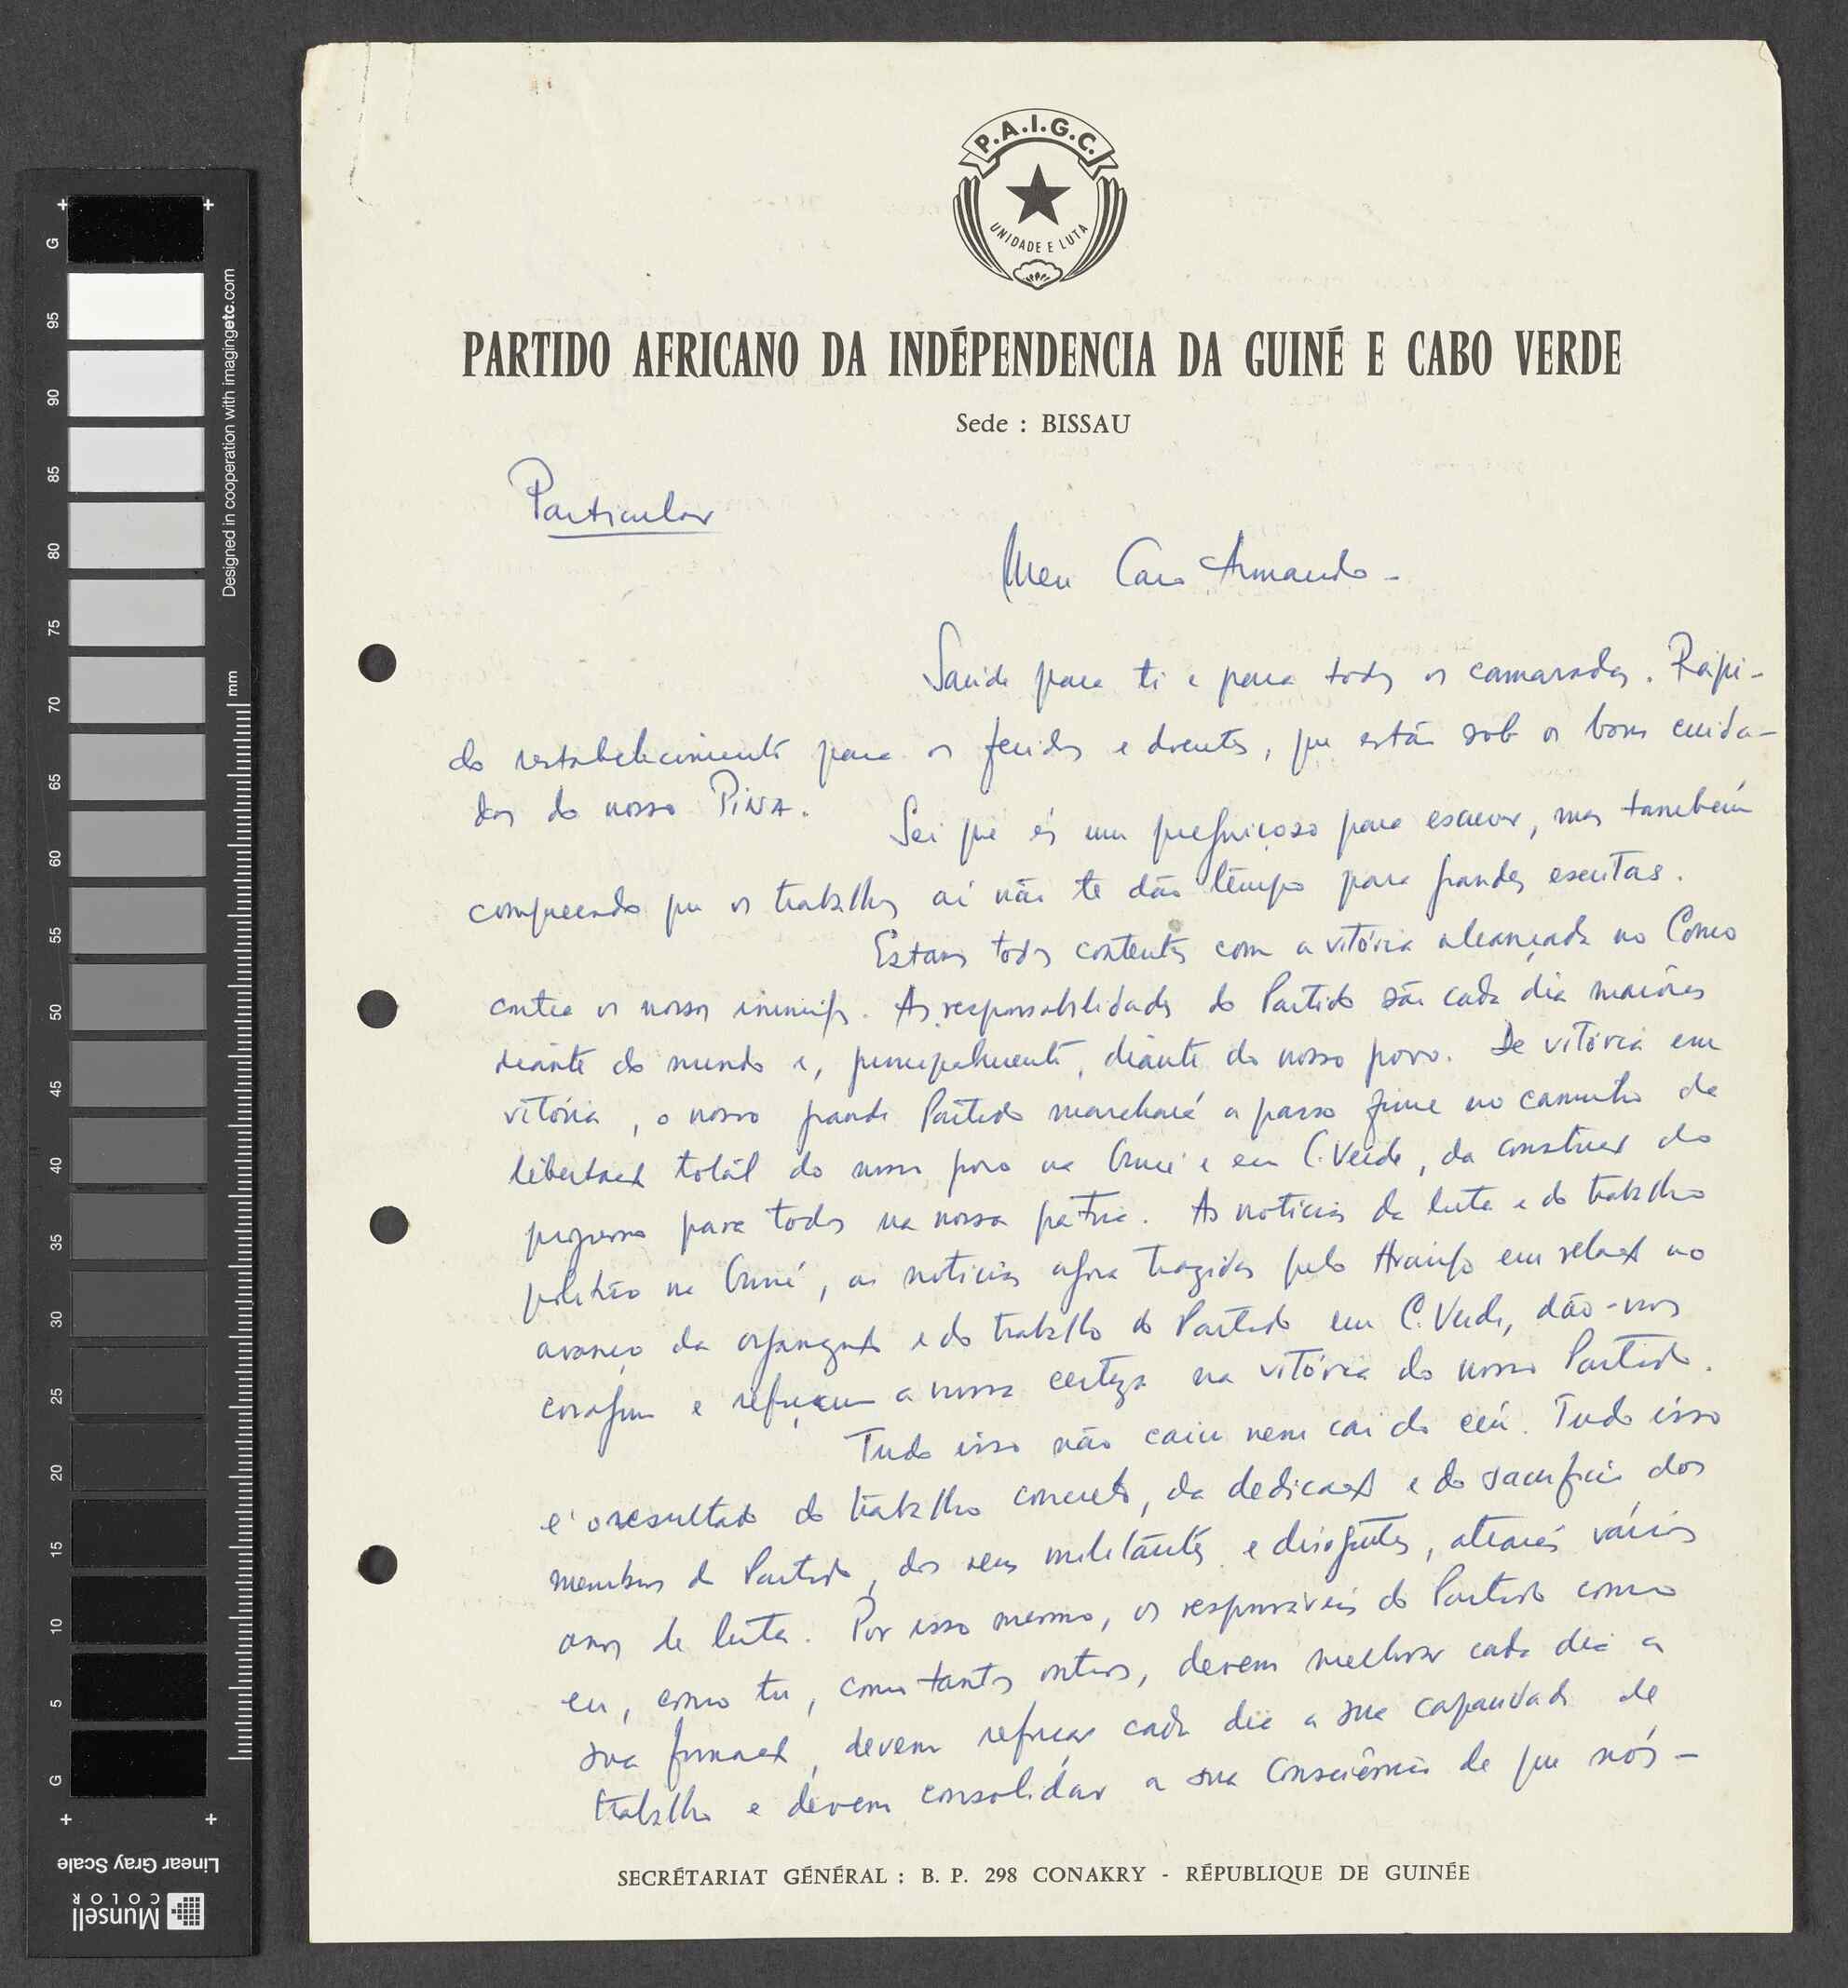 P.A.I.G.C.
UNIDADE E LUTA
PARTIDO AFRICANO DA INDÉPENDENCIA DA GUINÉ E CABO VERDE
Sede : BISSAU
Particular
Meu Caro Armando -
Saúde para ti e para todos os camaradas. Rápi-
do restabelecimento para os feridos e doentes, que estão sob os bons cuida-
dos do nosso PINA.
Sei que és um preguiçoso para escrever, mas também
compreendo que os trabalhos aí não te dão tempo para grandes escritas.
Estamos todos contentes com a vitória alcançada no Como
contra os nossos inimigos. As responsabilidades do Partido são cada dia maiores
diante do mundo e, principalmente, diante do nosso povo. De vitória em
vitória, o nosso grande Partido marchará a passo firme no caminho da
libertação total do nosso povo na Guiné e em C. Verde, da construção do
progresso para todos na nossa pátria. As notícias da luta e do trabalho
político na Guiné, as notícias agora trazidas pelo Araújo em relação ao
avanço da organização e do trabalho do Partido em C. Verde, dão-nos
coragem e reforçam a nossa certeza na vitória do nosso Partido.
Tudo isso não caiu nem cai do céu. Tudo isso
é o resultado do trabalho concreto, da dedicação e do sacrifício dos
membros do Partido, dos seus militantes e dirigentes, através vários
anos de luta. Por isso mesmo, os responsáveis do Partido como
eu, como tu, como tantos outros, devem melhorar cada dia a
sua formação, devem reforçar cada dia a sua capacidade de
trabalho e devem consolidar a sua consciência de que nós -
SECRÉTARIAT GÉNÉRAL : B. P. 298 CONAKRY - RÉPUBLIQUE DE GUINÉE
G 95 90 85 80 75 70 65 60 55 50 45 40 35 30 25 20 15 10 5 G
Designed in cooperation with imagingetc.com
mm
Linear Gray Scale
Munsell
COLOR